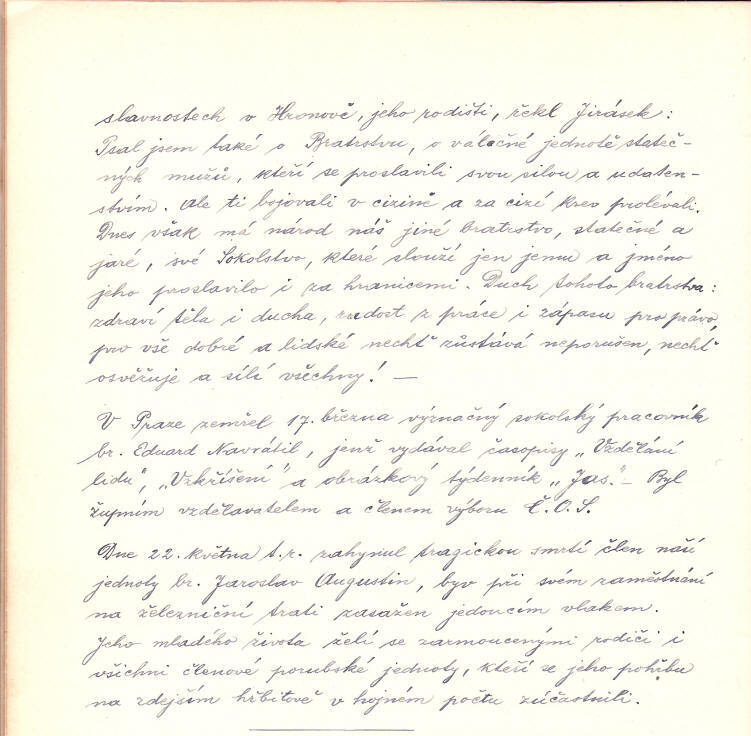 slavnostech v Hronově, jeho rodišti, řekl Jirásek:
Psal jsem také o Bratrstvu, o válečné jednotě stateč-
ných mužů, kteří se proslavili svou silou a udaten-
stvím. Ale ti bojovali v cizině a za cizí krev prolévali.
Dnes však má národ náš jiné bratrstvo, statečné a
jaré, své Sokolstvo, které slouží jen jemu a jméno
jeho proslavilo i za hranicemi. Duch tohoto bratrstva:
zdraví těla i ducha, radost z práce i zápasu pro právo,
pro vše dobré a lidské nechť zůstává neporušen, nechť
osvěžuje a sílí všechny! —
V Praze zemřel 17. března význačný sokolský pracovník
br. Eduard Navrátil, jenž vydával časopisy „Vzdělání
lidu", „Vzkříšení" a obrázkový týdenník „Jas." – Byl
župním vzdělavatelem a členem výboru Č.O.S.
Dne 22. května t.r. zahynul tragickou smrtí člen naší
jednoty br. Jaroslav Augustin, byv při svém zaměstnání
na železniční trati zasažen jedoucím vlakem.
Jeho mladého života želí se zarmoucenými rodiči i
všichni členové porubské jednoty, kteří se jeho pohřbu
na zdejším hřbitově v hojném počtu zúčastnili.